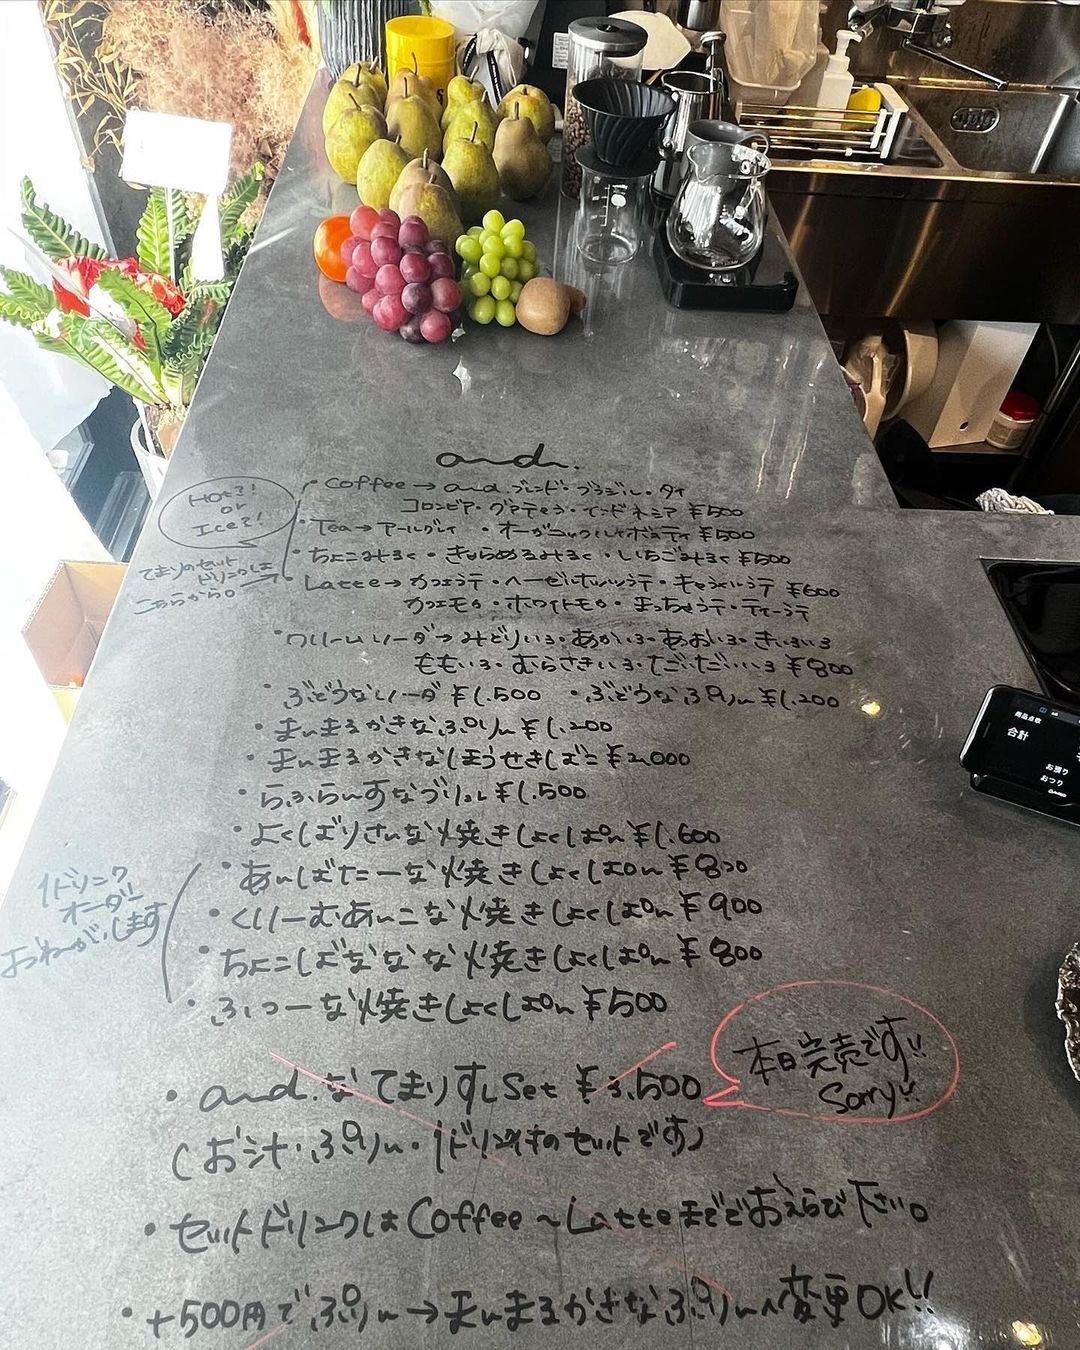 and.
Hot?!
or
Ice?!
・Coffee→and.ブレンド・ブラジル・タイ
コロンビア・グアテマラ・インドネシア ¥500
・Tea→アールグレイ ・オーガニックルイボスティ ¥500
・ちょこみるく・きゃらめるみるく・いちごみるく ¥500
てまりのセット
ドリンクは
こちらから。
・Latte→カフェラテ・ヘーゼルナッツラテ・キャラメルラテ ¥600
カフェモカ・ホワイトモカ・まっちゃラテ・ティーラテ
・クリームソーダ→みどりいろ・あかいろ・あおいろ・きいろいろ
ももいろ・むらさきいろ・だいだいいろ ¥800
・ぶどうなソーダ ¥1.500 ・ぶどうなぷりん ¥1.200
・まんまるかきなぷりん ¥1.200
・まんまるかきなほうせきばこ ¥2,000
・らふらんすなブリュレ ¥1.500
・よくばりさんな焼きしょくぱん ¥1.600
1ドリンク
オーダー
おねがいします
・あんばたーな焼きしょくぱん ¥800
・くりーむあんこな焼きしょくぱん ¥900
・ちょこばななな焼きしょくぱん ¥800
・ふつーな焼きしょくぱん ¥500
本日完売です!!
Sorry!!
・and.なてまりすしSet ¥3,500
(お汁・ぷりん・1ドリンク付のセットです)
・セットドリンクはCoffee～Latteまででおえらび下さい。
・+500円でぷりん→まんまるかきなぷりんへ変更OK!!
商品点数
合計
お預り
おつり
CASIO